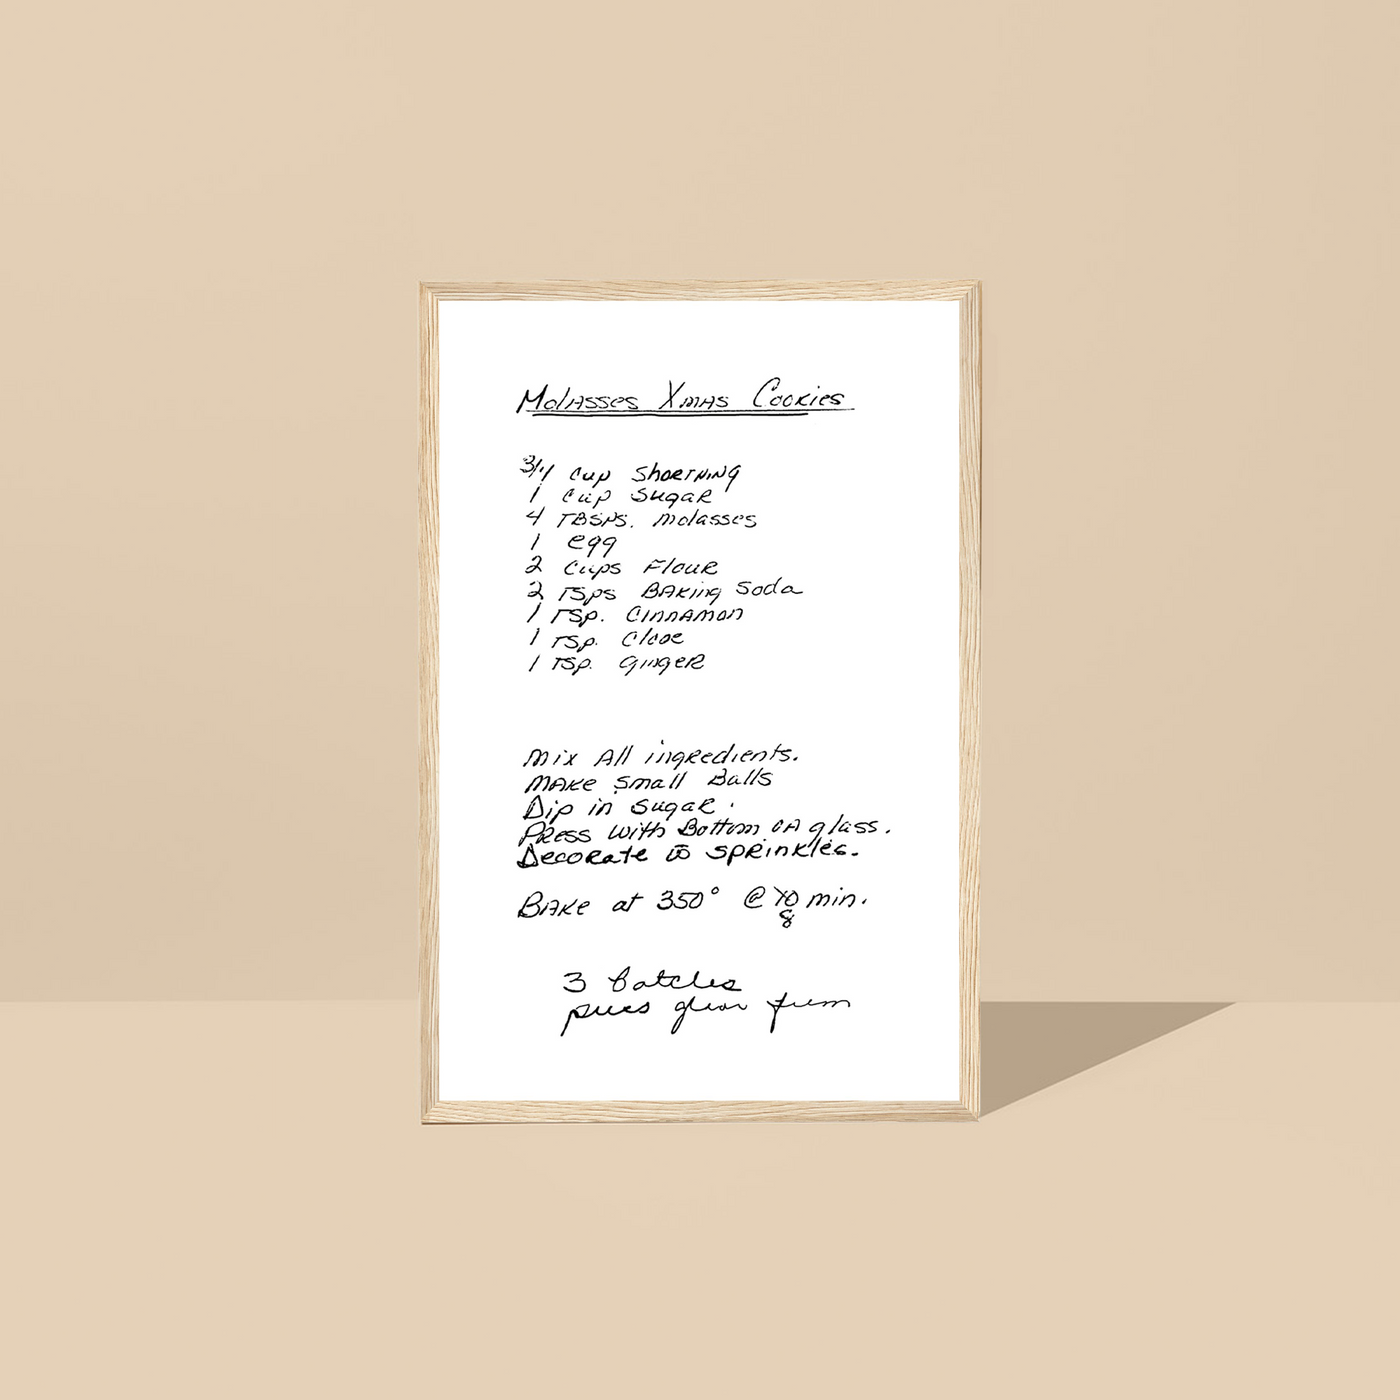 Molasses Xmas Cookies
3/4 cup Shortning
1 cup Sugar
4 TBSPS. molasses
1 egg
2 cups Flour
2 TSps Baking Soda
1 TSp. Cinnamon
1 TSp. Clove
1 TSp. Ginger
Mix All ingredients.
Make small Balls
Dip in sugar.
Press with Bottom of A glass.
Decorate w sprinkles.
Bake at 350° @ 10 min.
8
3 batches